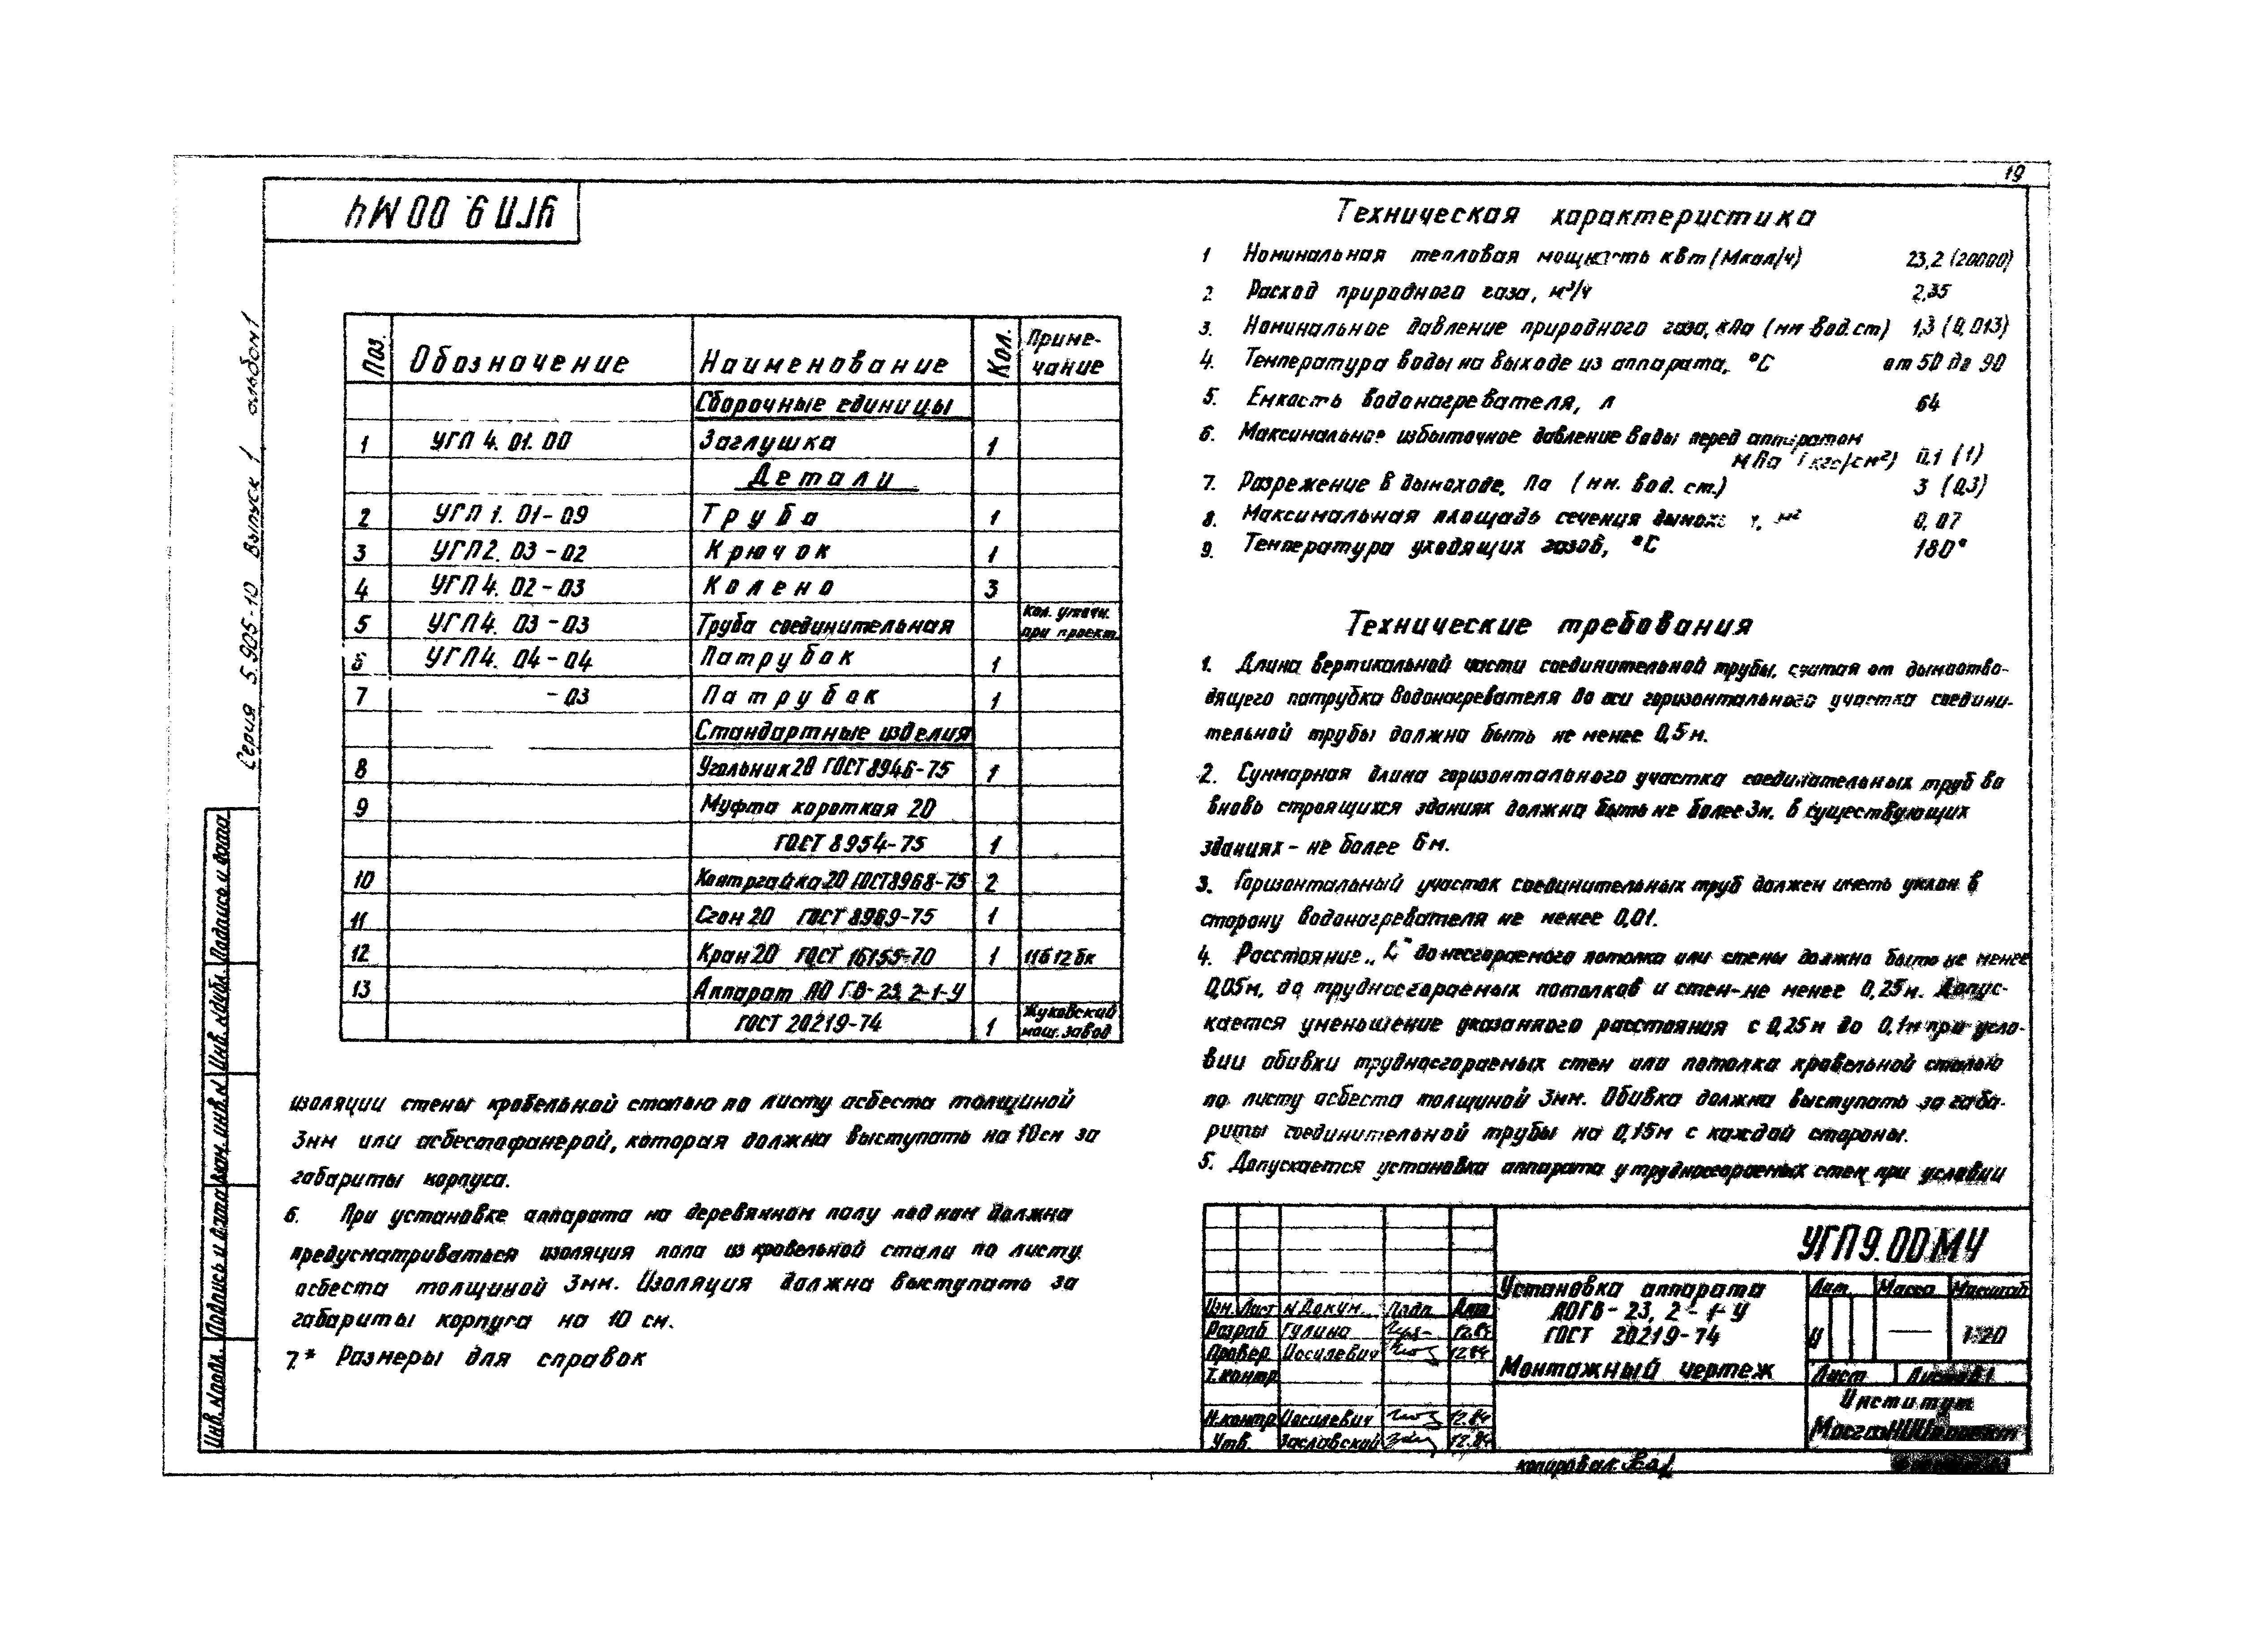 19
УГП 9.00 МЧ
Серия 5.905-10 Выпуск 1 альбом 1
Поз. Обозначение Наименование Кол. Приме-
чание
Сборочные единицы
1 УГП 4.01.00 Заглушка 1
Детали
2 УГП 1.01-09 Труба 1
3 УГП2.03-02 Крючок 1
4 УГП4.02-03 Колено 3
5 УГП4.03-03 Труба соединительная Кол. уточн.
при проект.
6 УГП4.04-04 Патрубок 1
7 -03 Патрубок 1
Стандартные изделия
8 Угольник 20 ГОСТ 8946-75 1
9 Муфта короткая 20
ГОСТ 8954-75 1
10 Контргайка 20 ГОСТ 8968-75 2
11 Сгон 20 ГОСТ 8969-75 1
12 Кран 20 ГОСТ 16155-70 1 11б12бк
13 Аппарат АОГВ-23,2-1-У
ГОСТ 20219-74 1 Жуковский
маш. завод
изоляции стены кровельной сталью по листу асбеста толщиной
3мм или асбестофанерой, которая должна выступать на 10см за
габариты корпуса.
6. При установке аппарата на деревянном полу под ним должна
предусматриваться изоляция пола из кровельной стали по листу
асбеста толщиной 3мм. Изоляция должна выступать за
габариты корпуса на 10 см.
7.* Размеры для справок
Техническая характеристика
1 Номинальная тепловая мощность квт (Мкал/ч) 23,2 (20000)
2. Расход природного газа, м³/ч 2,35
3. Номинальное давление природного газа, кПа (мм вод.ст) 1,3 (0,013)
4. Температура воды на выходе из аппарата, °С от 50 до 90
5. Емкость водонагревателя, л 64
6. Максимальное избыточное давление воды перед аппаратом
МПа (кгс/см²) 0,1 (1)
7. Разрежение в дымоходе, Па (мм. вод. ст.) 3 (0,3)
8. Максимальная площадь сечения м² 0,07
9. Температура уходящих газов, °С 180*
Технические требования
1. Длина вертикальной части соединительной трубы, считая от дымоотво-
дящего патрубка водонагревателя до оси горизонтального участка соедини-
тельной трубы должна быть не менее 0,5м.
2. Суммарная длина горизонтального участка соединительных труб во
вновь строящихся зданиях должна быть не более 3м, в существующих
зданиях - не более 6м.
3. Горизонтальный участок соединительных труб должен иметь уклон в
сторону водонагревателя не менее 0,01.
4. Расстояние „L" до несгораемого потолка или стены должно быть не менее
0,05м, до трудносгораемых потолков и стен-не менее 0,25м. Допус-
кается уменьшение указанного расстояния с 0,25м до 0,1м при усло-
вии обивки трудносгораемых стен или потолка кровельной сталью
по листу асбеста толщиной 3мм. Обивка должна выступать за габа-
риты соединительной трубы на 0,15м с каждой стороны.
5. Допускается установка аппарата у трудносгораемых стен при условии
УГП9.00МЧ
Установка аппарата
АОГВ-23,2-1-У
ГОСТ 20219-74
Монтажный чертеж
Лит. Масса Масштаб
И — 1:20
Лист Листов 1
Институт
МосгазНИИпроект
Изм. Лист N Докум. Подп. Дата
Разраб Гулина 12.84
Провер. Иосилевич 12.84
Т.контр.
Н.контр. Иосилевич 12.84
Утв. Заславский 12.84
копировал:
Подпись и дата
Инв. N дубл.
Взам. инв. N
Подпись и дата
Инв. N подл.